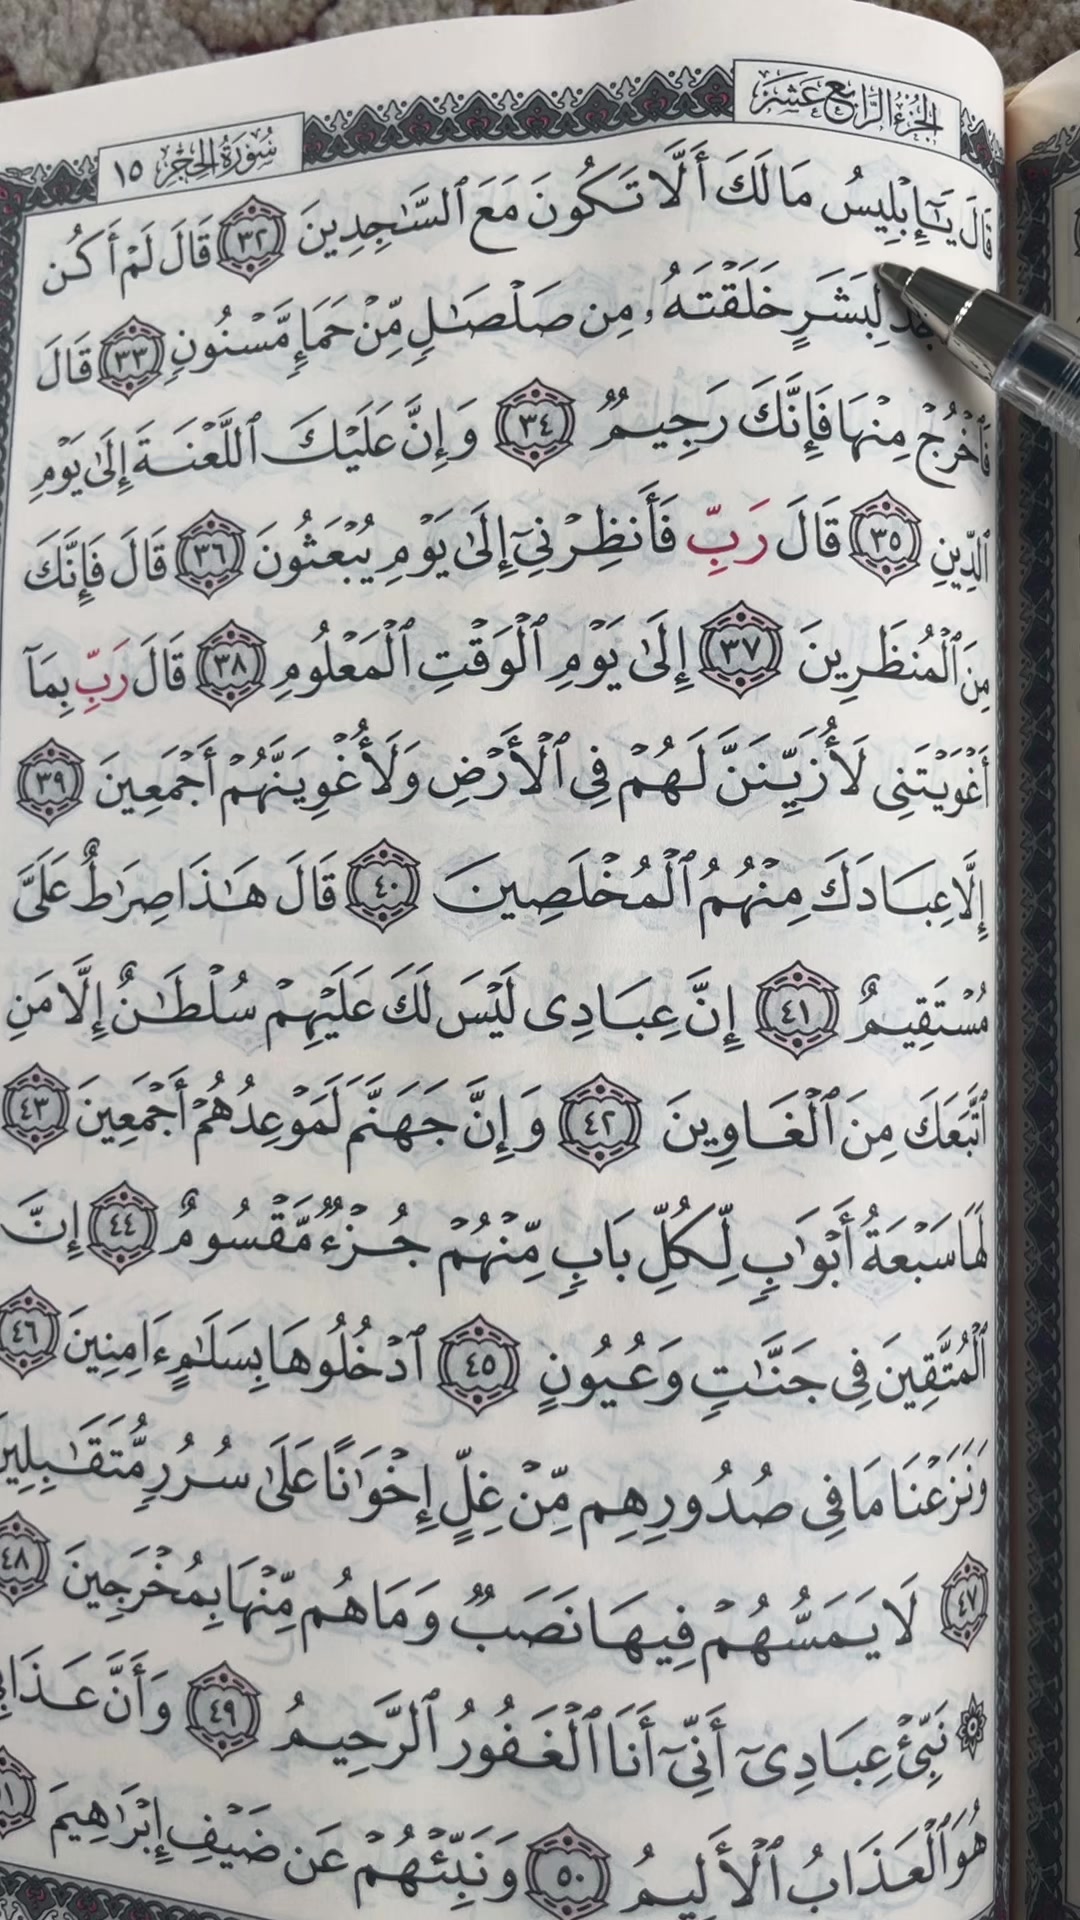 الجزء الرابع عشر
سورة الحجر ١٥
قَالَ يَٰٓإِبۡلِيسُ مَا لَكَ أَلَّا تَكُونَ مَعَ ٱلسَّٰجِدِينَ ٣٢ قَالَ لَمۡ أَكُن
لِبَشَرٍ خَلَقۡتَهُۥ مِن صَلۡصَٰلٖ مِّنۡ حَمَإٖ مَّسۡنُونٖ ٣٣ قَالَ
فَٱخۡرُجۡ مِنۡهَا فَإِنَّكَ رَجِيمٞ ٣٤ وَإِنَّ عَلَيۡكَ ٱللَّعۡنَةَ إِلَىٰ يَوۡمِ
ٱلدِّينِ ٣٥ قَالَ رَبِّ فَأَنظِرۡنِيٓ إِلَىٰ يَوۡمِ يُبۡعَثُونَ ٣٦ قَالَ فَإِنَّكَ
مِنَ ٱلۡمُنظَرِينَ ٣٧ إِلَىٰ يَوۡمِ ٱلۡوَقۡتِ ٱلۡمَعۡلُومِ ٣٨ قَالَ رَبِّ بِمَآ
أَغۡوَيۡتَنِي لَأُزَيِّنَنَّ لَهُمۡ فِي ٱلۡأَرۡضِ وَلَأُغۡوِيَنَّهُمۡ أَجۡمَعِينَ ٣٩
إِلَّا عِبَادَكَ مِنۡهُمُ ٱلۡمُخۡلَصِينَ ٤٠ قَالَ هَٰذَا صِرَٰطٌ عَلَيَّ
مُسۡتَقِيمٌ ٤١ إِنَّ عِبَادِي لَيۡسَ لَكَ عَلَيۡهِمۡ سُلۡطَٰنٌ إِلَّا مَنِ
ٱتَّبَعَكَ مِنَ ٱلۡغَاوِينَ ٤٢ وَإِنَّ جَهَنَّمَ لَمَوۡعِدُهُمۡ أَجۡمَعِينَ ٤٣
لَهَا سَبۡعَةُ أَبۡوَٰبٖ لِّكُلِّ بَابٖ مِّنۡهُمۡ جُزۡءٞ مَّقۡسُومٌ ٤٤ إِنَّ
ٱلۡمُتَّقِينَ فِي جَنَّٰتٖ وَعُيُونٍ ٤٥ ٱدۡخُلُوهَا بِسَلَٰمٍ ءَامِنِينَ ٤٦
وَنَزَعۡنَا مَا فِي صُدُورِهِم مِّنۡ غِلٍّ إِخۡوَٰنًا عَلَىٰ سُرُرٖ مُّتَقَٰبِلِينَ
٤٧ لَا يَمَسُّهُمۡ فِيهَا نَصَبٞ وَمَا هُم مِّنۡهَا بِمُخۡرَجِينَ ٤٨
۞ نَبِّئۡ عِبَادِيٓ أَنِّيٓ أَنَا ٱلۡغَفُورُ ٱلرَّحِيمُ ٤٩ وَأَنَّ عَذَابِي
هُوَ ٱلۡعَذَابُ ٱلۡأَلِيمُ ٥٠ وَنَبِّئۡهُمۡ عَن ضَيۡفِ إِبۡرَٰهِيمَ